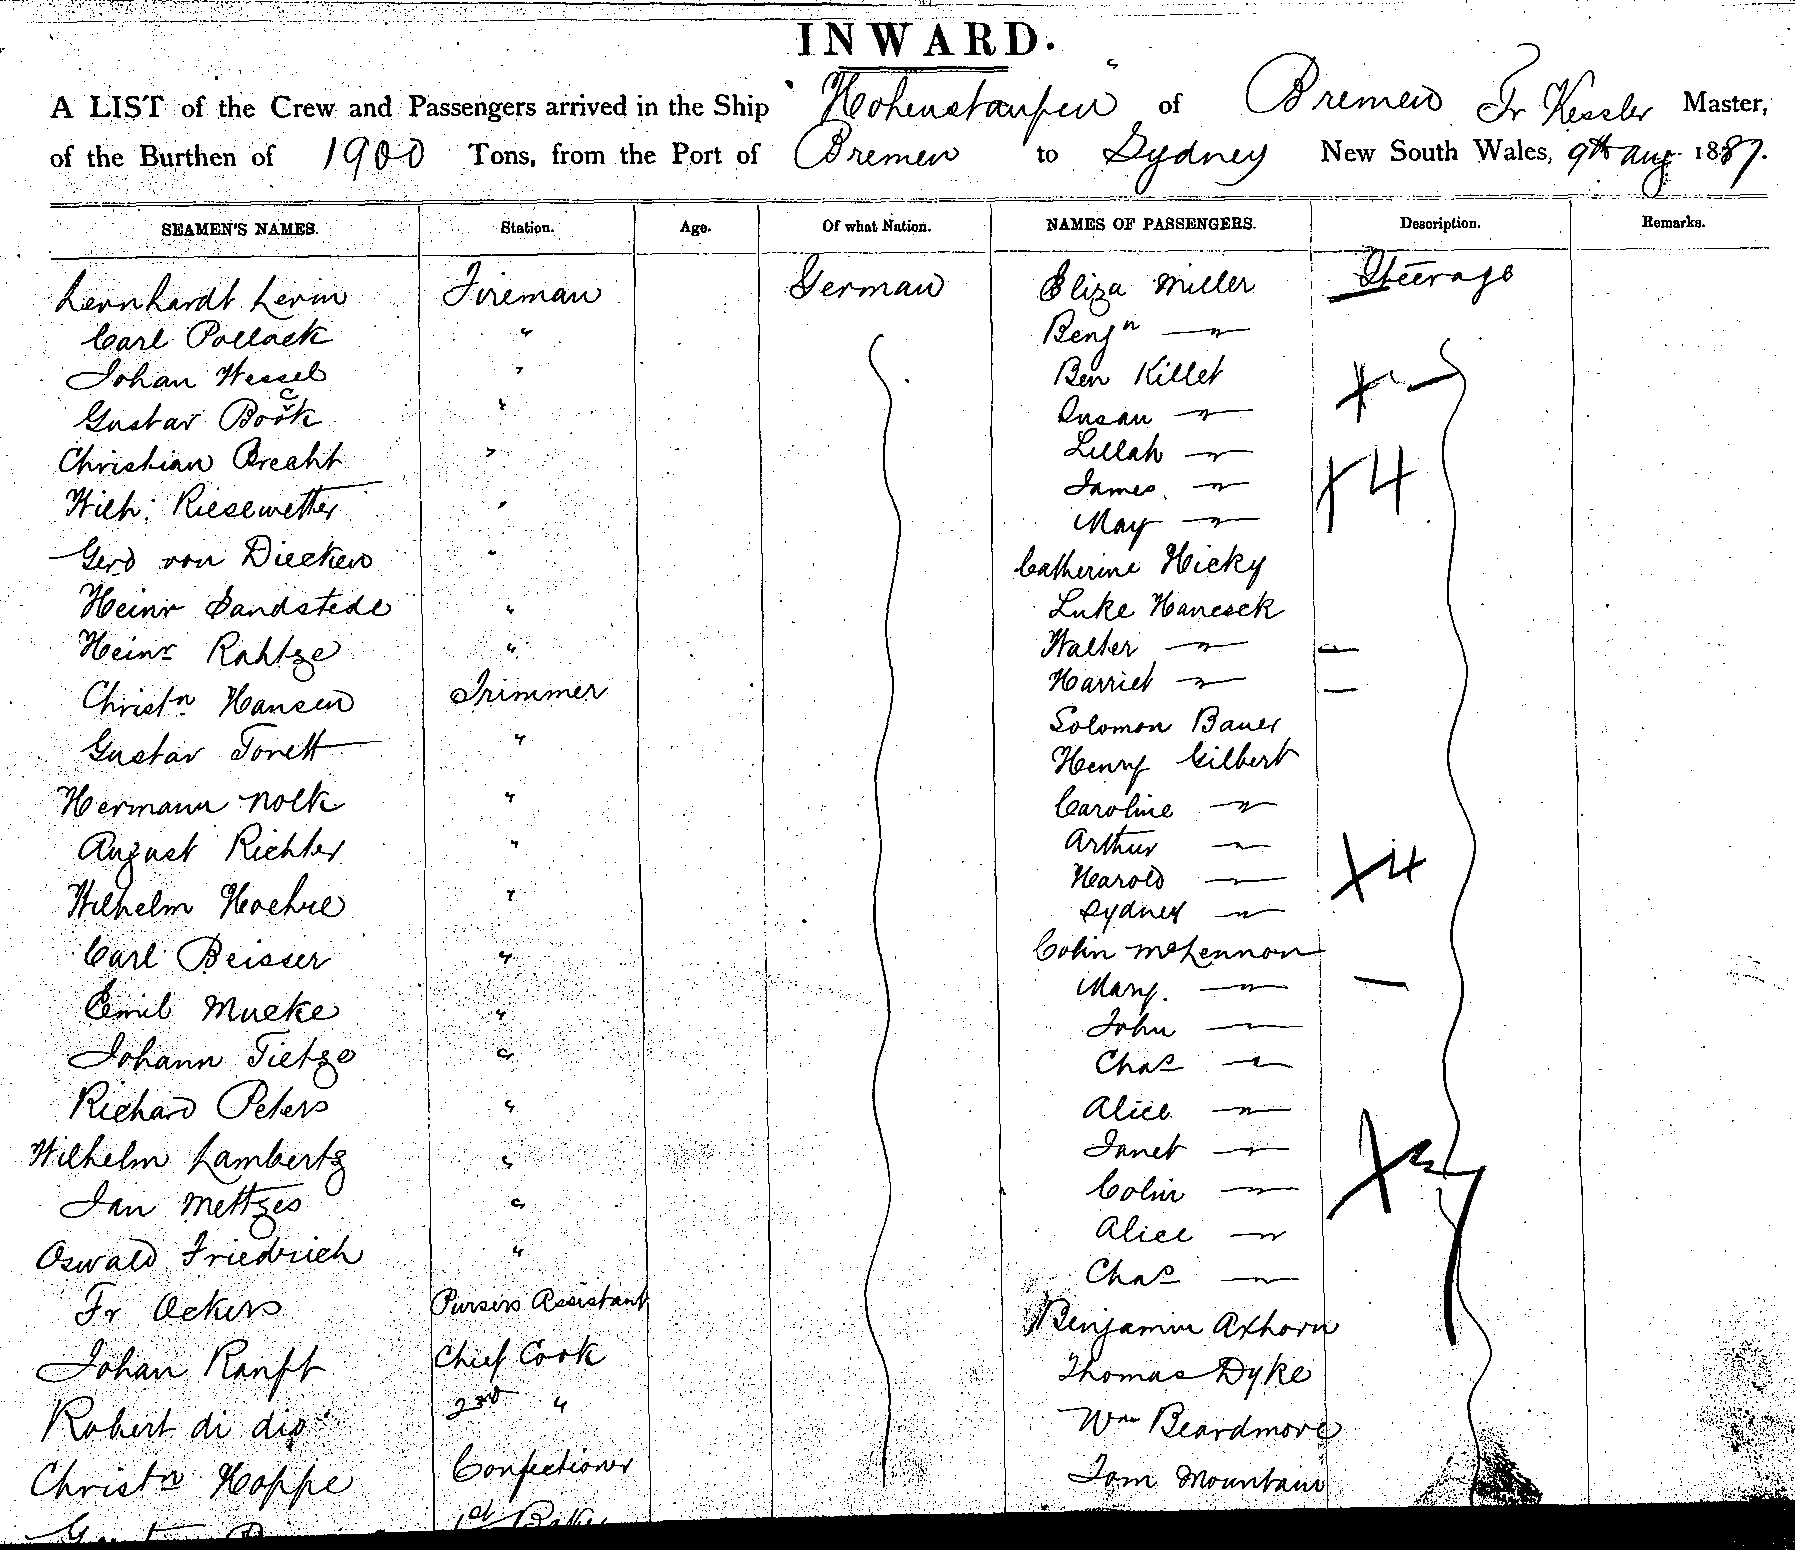 INWARD.
A LIST of the Crew and Passengers arrived in the Ship "Hohenstaufen" of Bremen Fr Kessler Master,
of the Burthen of 1900 Tons, from the Port of Bremen to Sydney New South Wales, 9th Aug 1887.
SEAMEN'S NAMES. Station. Age. Of what Nation. NAMES OF PASSENGERS. Description. Remarks.
Lernhardt Levin Fireman German Eliza Miller Steerage
Carl Pollack " Benjn —"—
Johan Wessel " Ben Killet
Gustav Bock " Susan —"—
Christian Brecht " Lillah —"—
Wilh. Riesewetter " James —"— X 4
Gerd von Diecken " May —"—
Heinr Sandstede " Catherine Hicky
Heinr Rahtge " Luke Hancock
Christn Hansen Trimmer Walter —"—
Gustav Tonett " Harriet —"—
Hermann Nolk " Solomon Bauer
August Richter " Henry Gilbert
Wilhelm " Caroline —"—
Carl Beisser " Arthur —"—
Emil Mucke " Harold —"— X 4
Johann Tietze " Sydney —"—
Richard Peters " Colin McLennon
Wilhelm Lambertz " Mary. —"—
Jan Mettges " John —"—
Oswald Friedrich " Chas —"—
Fr Ockers Pursers Assistant Alice —"—
Johan Ranft Chief Cook Janet —"—
Robert di dio 2nd " Colin —"—
Christn Hoppe Confectioner Alice —"—
1st Baker Chas —"—
Benjamin Axhorn
Thomas Dyke
Wm Beardmore
Tom Mountain